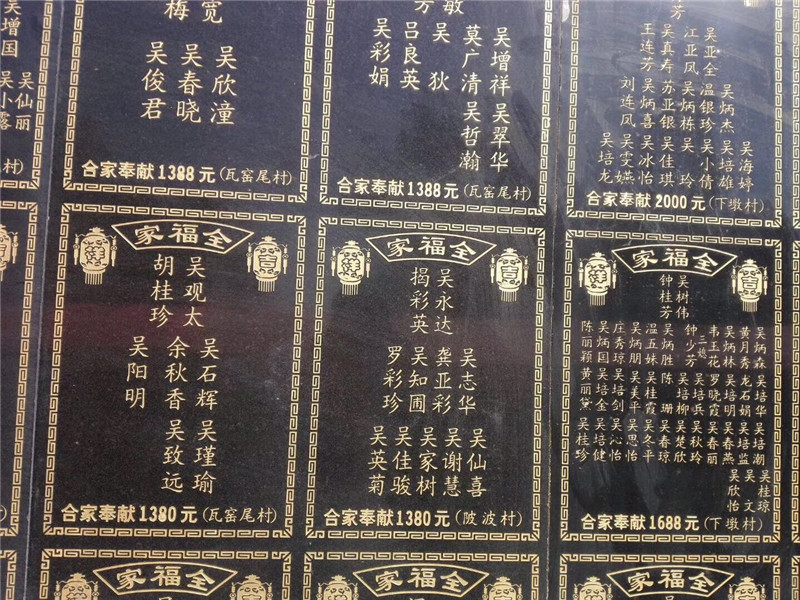 吴增国
吴仙丽
吴小露
宽
梅
吴欣潼
吴春晓
吴俊君
合家奉献1388元(瓦窑尾村)
敏
芳
吴增祥
莫广清
吴狄
吕良英
吴彩娟
吴翠华
吴哲瀚
合家奉献1388元(瓦窑尾村)
芳
吴亚全
江亚凤
吴真寿
王连芳
吴炳杰
温银珍
吴炳栋
苏亚银
吴炳喜
刘连凤
吴海婷
吴培雄
吴小倩
吴玲
吴佳琪
吴冰怡
吴雯嬿
吴培龙
合家奉献2000元(下墩村)
全福家
吴观太
胡桂珍
吴石辉
余秋香
吴阳明
吴瑾瑜
吴致远
合家奉献1380元(瓦窑尾村)
全福家
吴永达
揭彩英
吴志华
龚亚彩
吴知圃
罗彩珍
吴仙喜
吴谢慧
吴家树
吴佳骏
吴英菊
合家奉献1380元(陂波村)
全福家
吴树伟
钟桂芳
吴炳森
黄月秀
吴炳林
韦玉花
钟少芳
吴炳胜
温五妹
吴炳朋
庄秀琼
吴炳国
陈丽颖
吴培华
龙石娟
吴培明
罗晓霞
吴培兵
吴培柳
陈珊
吴桂霞
吴美平
吴培剑
吴培金
黄丽黛
吴培潮
吴培监
吴春燕
吴春丽
吴秋玲
吴楚欣
吴春琼
吴冬平
吴思怡
吴沁怡
吴培健
吴桂珍
吴桂琼
吴文
吴欣怡
合家奉献1688元(下墩村)
全福家
全福家
全福家